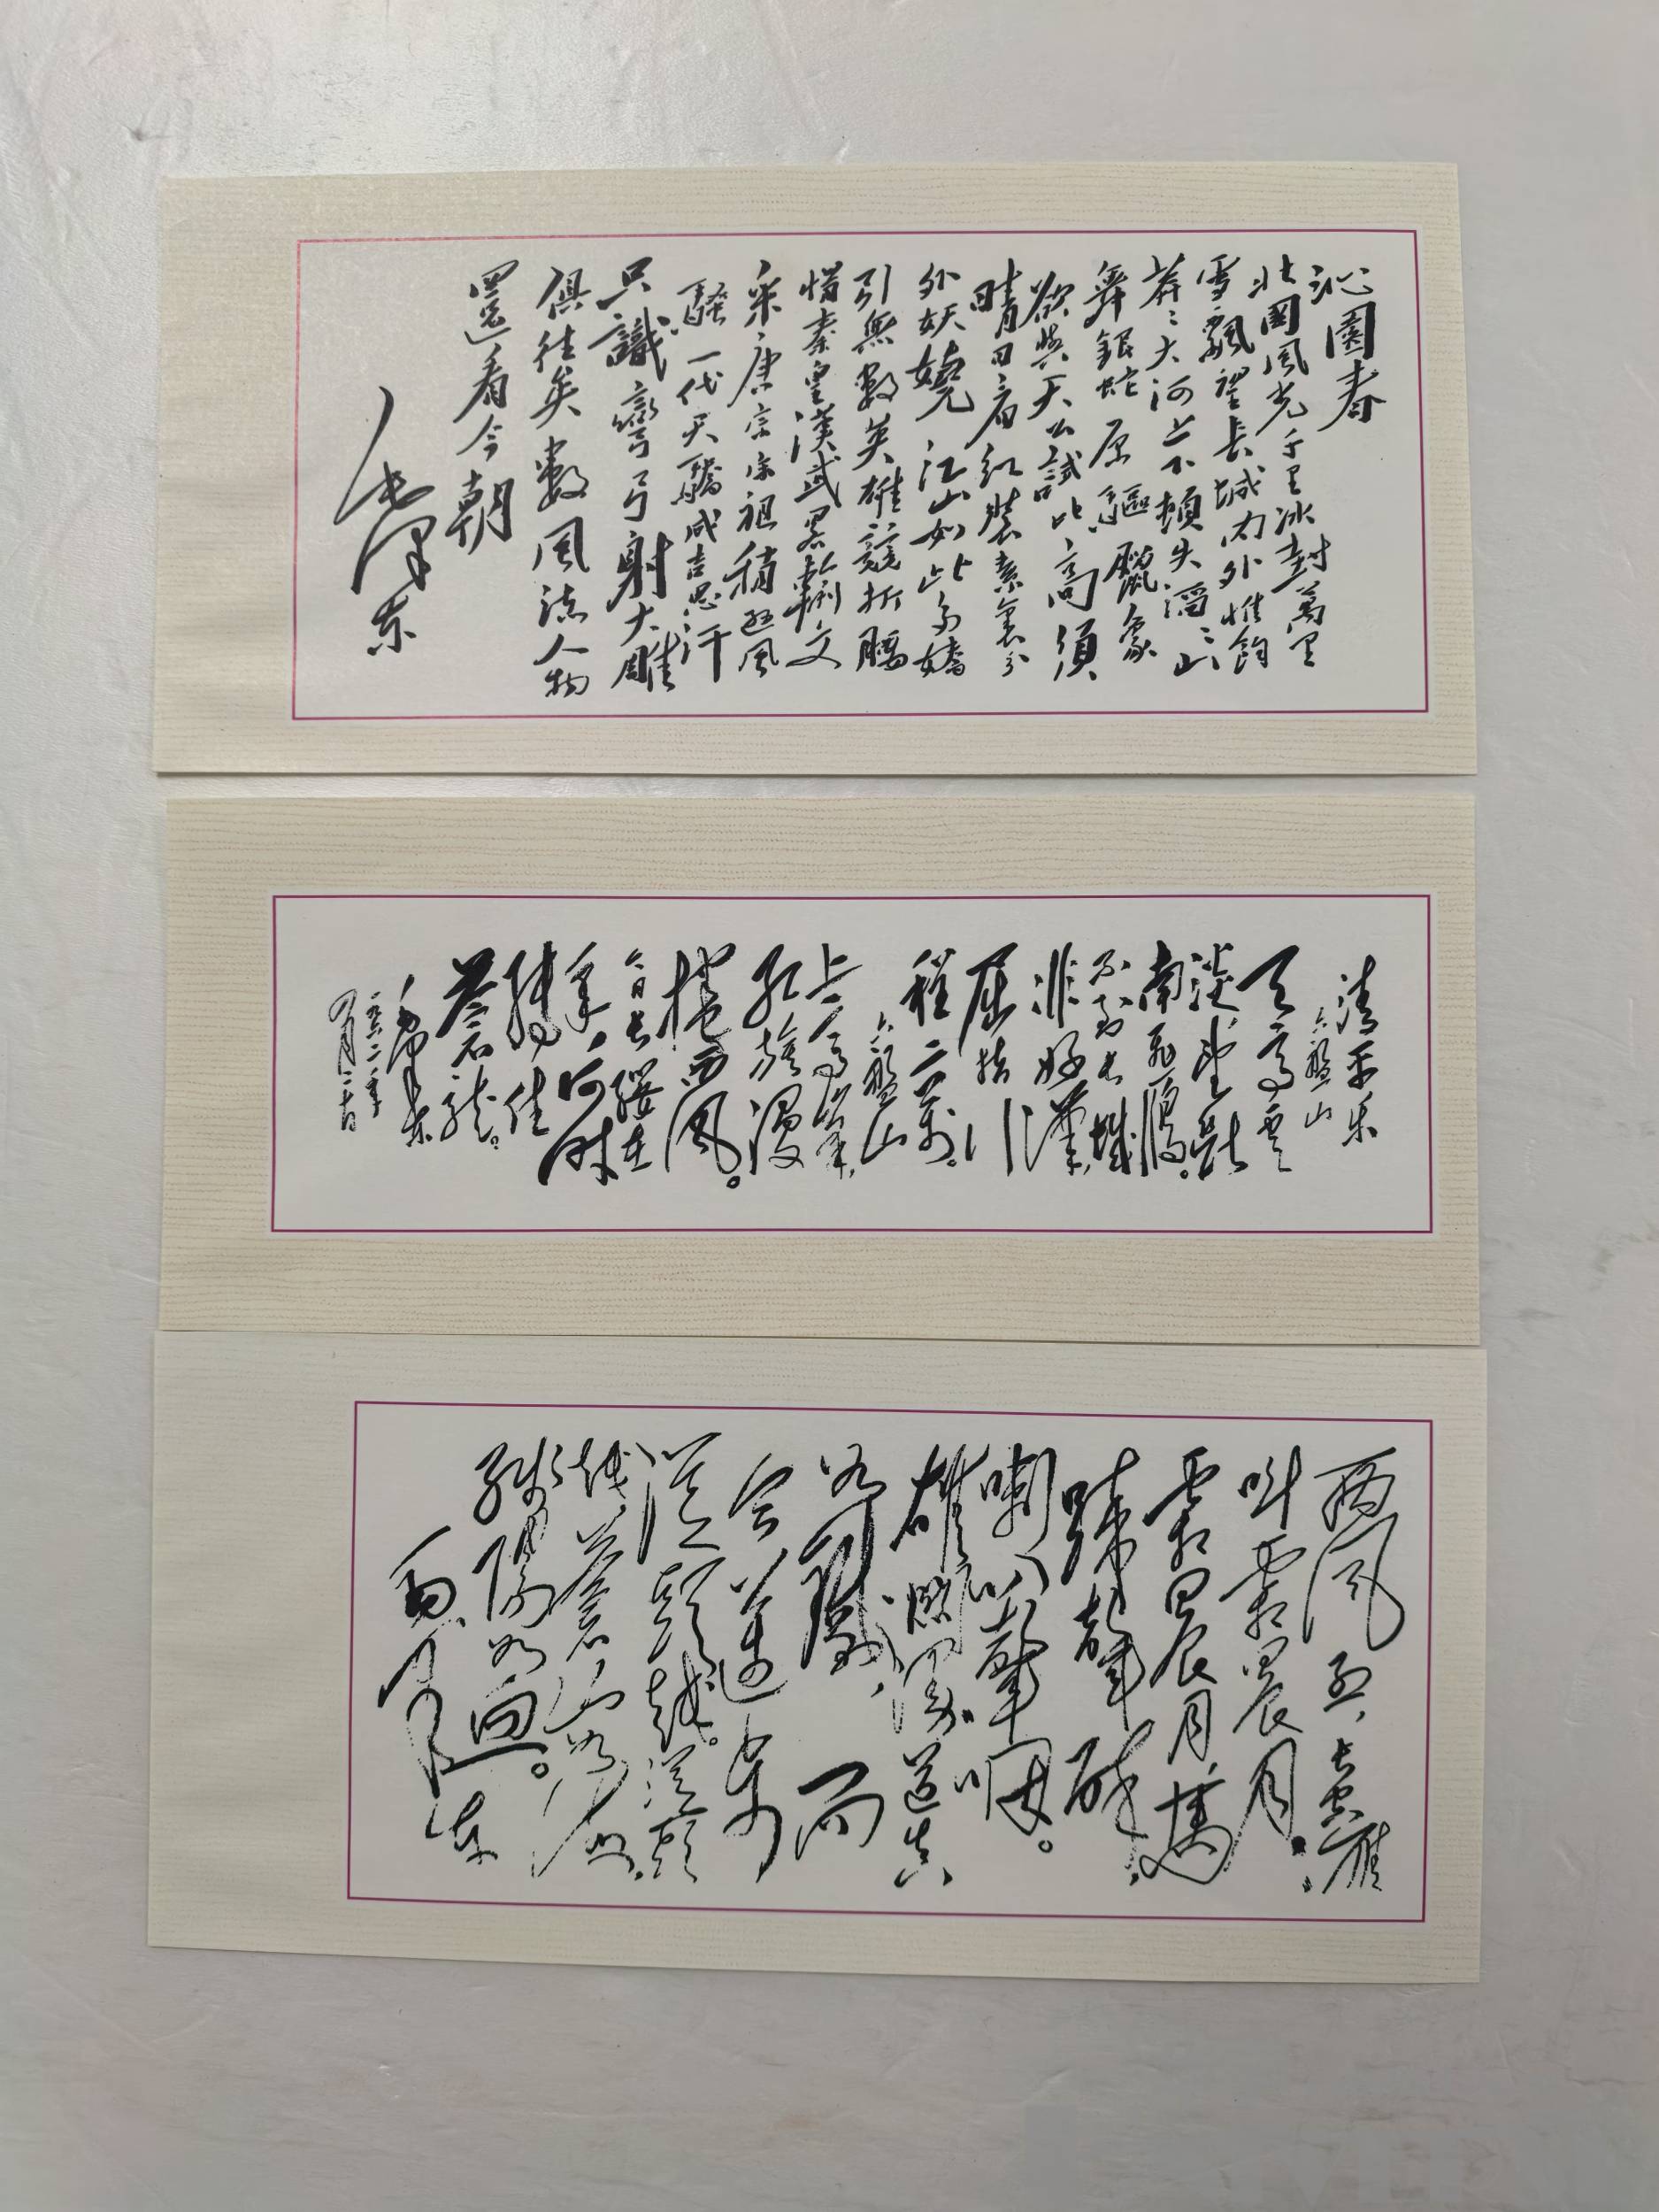 沁園春
北國風光千里冰封萬里
雪飄望長城内外惟餘
莽々大河上下頓失滔々山
舞銀蛇原驅臘象
欲與天公試比高須
晴日看紅裝素裹分
外妖嬈江山如此多嬌
引無數英雄競折腰
惜秦皇漢武畧輸文
采唐宗宋祖稍遜風
騷一代天驕成吉思汗
只識彎弓射大雕
俱往矣數風流人物
還看今朝
毛泽东
清平乐
六盤山
天高雲
淡,望断
南飛雁。
不到长城
非好漢,
屈指行
程二萬。
六盤山
上高峰,
红旗漫
捲西風。
今日长缨在
手,何时
缚住
蒼龍。
毛泽东
西风烈,长空雁
叫霜晨月。
霜晨月,馬
蹄聲碎,
喇叭聲咽。
雄關漫道真
如鐵,而
今邁步
從頭越。從頭
越,蒼山如海,
残陽如血。
毛泽东